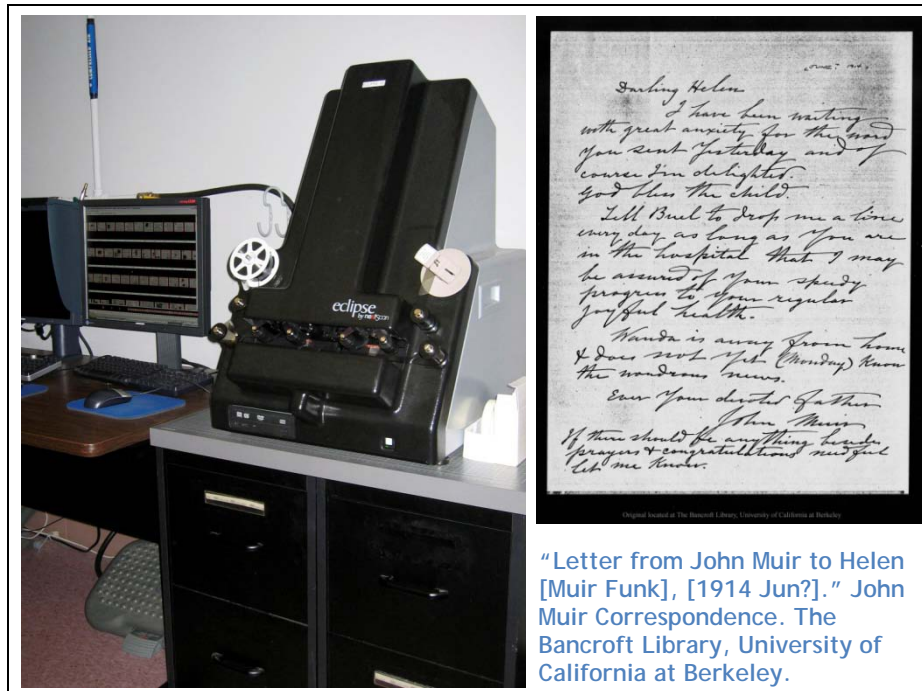 eclipse
by nextScan
Darling Helen
I have been waiting
with great anxiety for the word
you sent yesterday and of
course I'm delighted.
God bless the child.
Tell Buel to drop me a line
every day as long as you are
in the hospital that I may
be assured of your speedy
progress to your regular
joyful health.
Wanda is away from home
& does not yet (Monday) know
the wondrous news.
Ever your devoted father
John Muir
If there should be anything besides
prayers & congratulations needful
let me know.
Original located at The Bancroft Library, University of California at Berkeley
“Letter from John Muir to Helen
[Muir Funk], [1914 Jun?].” John
Muir Correspondence. The
Bancroft Library, University of
California at Berkeley.